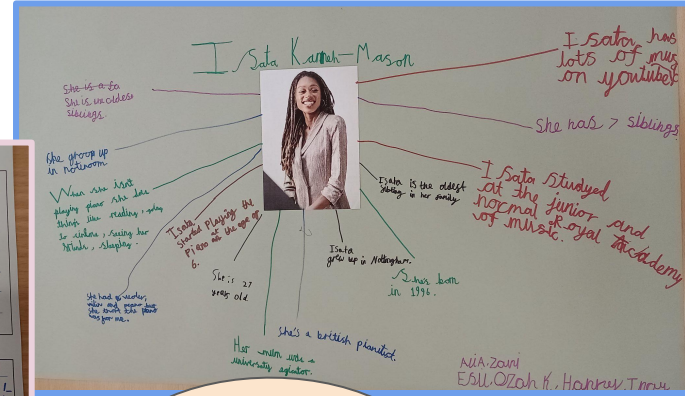 Isata Kanneh-Mason
She is a
She is the oldest
siblings.
She groop up
in notinoom
When she isnt
playing piano she does
things like reading,
seeing her
friends, sleeping.
She had
She thort the piano
was for me.
Isata
started Playing the
Piano at
at the age of
6.
She is 27
years old
Her mum was a
university
She's a british pianitict.
Isata
grew up in Nottingham.
She's born
in 1996.
Isata is the oldest
sibling in her family
Isata has
lots of
on youtube
She has 7 siblings
Isata studied
at the junior and
normal Royal Academy
of music.
Zayn
Esll, Ozah K, Harry,